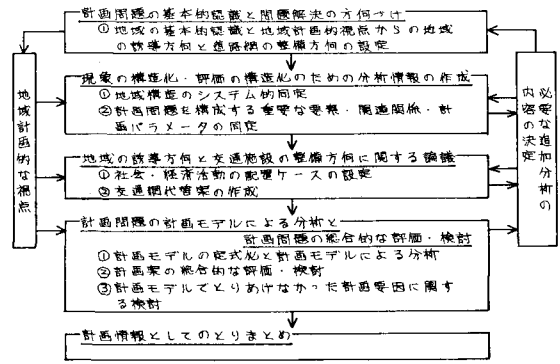 計画問題の基本的認識と問題解決の方向づけ
①地域の基本的認識と地域計画的視点からの地域
の誘導方向と道路網の整備方向の設定
現象の構造化・評価の構造化のための分析情報の作成
①地域構造のシステム的同定
②計画問題を構成する重要な要素・関連関係・計
画パラメータの同定
地域の誘導方向と交通施設の整備方向に関する論議
①社会・経済活動の配置ケースの設定
②交通網代替案の作成
計画問題の計画モデルによる分析と
計画問題の総合的な評価・検討
①計画モデルの定式化と計画モデルによる分析
②計画案の総合的な評価・検討
③計画モデルでとりあげなかった計画要因に関す
る検討
計画情報としてのとりまとめ
地域計画的な視点
必要な追加分析の
内容の決定